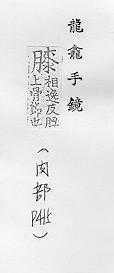 龍龕手鏡
膝 相逸反脛
上骨節也
(肉部
P415)